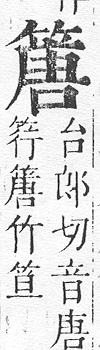 篖
台郎切音唐
筕篖竹笪